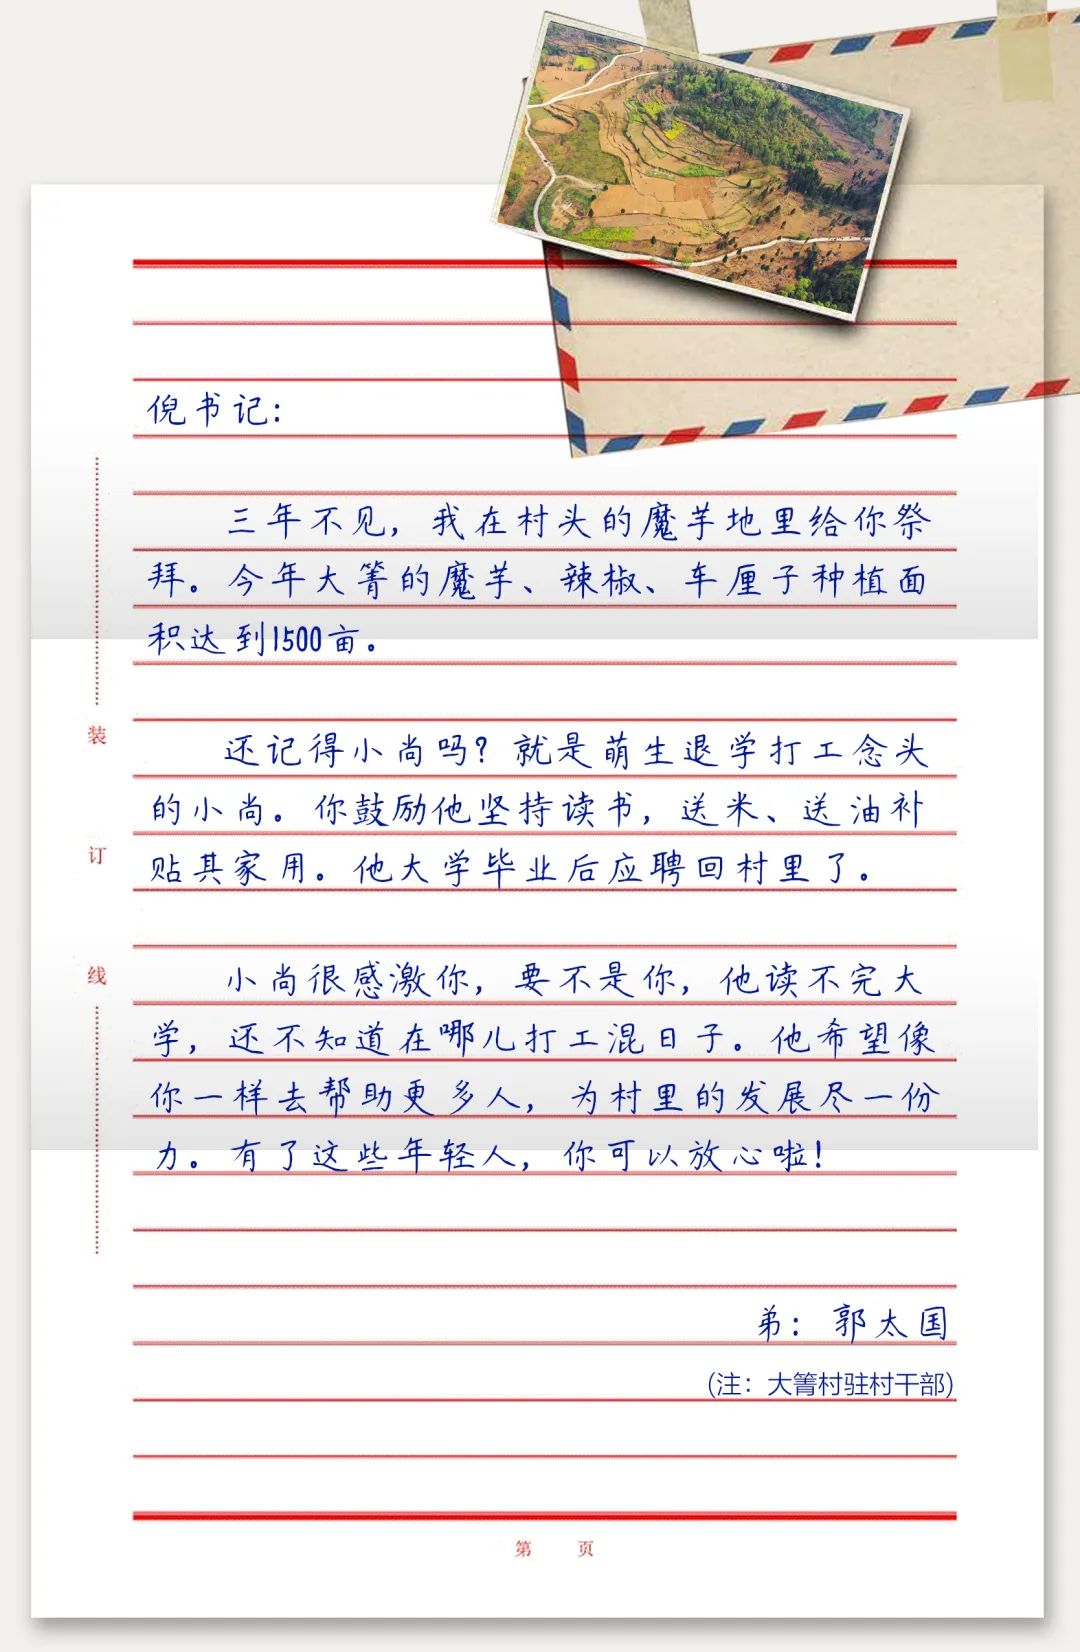 倪书记:
三年不见，我在村头的魔芋地里给你祭
拜。今年大箐的魔芋、辣椒、车厘子种植面
积达到1500亩。
还记得小尚吗？就是萌生退学打工念头
的小尚。你鼓励他坚持读书，送米、送油补
贴其家用。他大学毕业后应聘回村里了。
小尚很感激你，要不是你，他读不完大
学，还不知道在哪儿打工混日子。他希望像
你一样去帮助更多人，为村里的发展尽一份
力。有了这些年轻人，你可以放心啦!
弟：郭太国
(注：大箐村驻村干部)
装
订
线
第 页